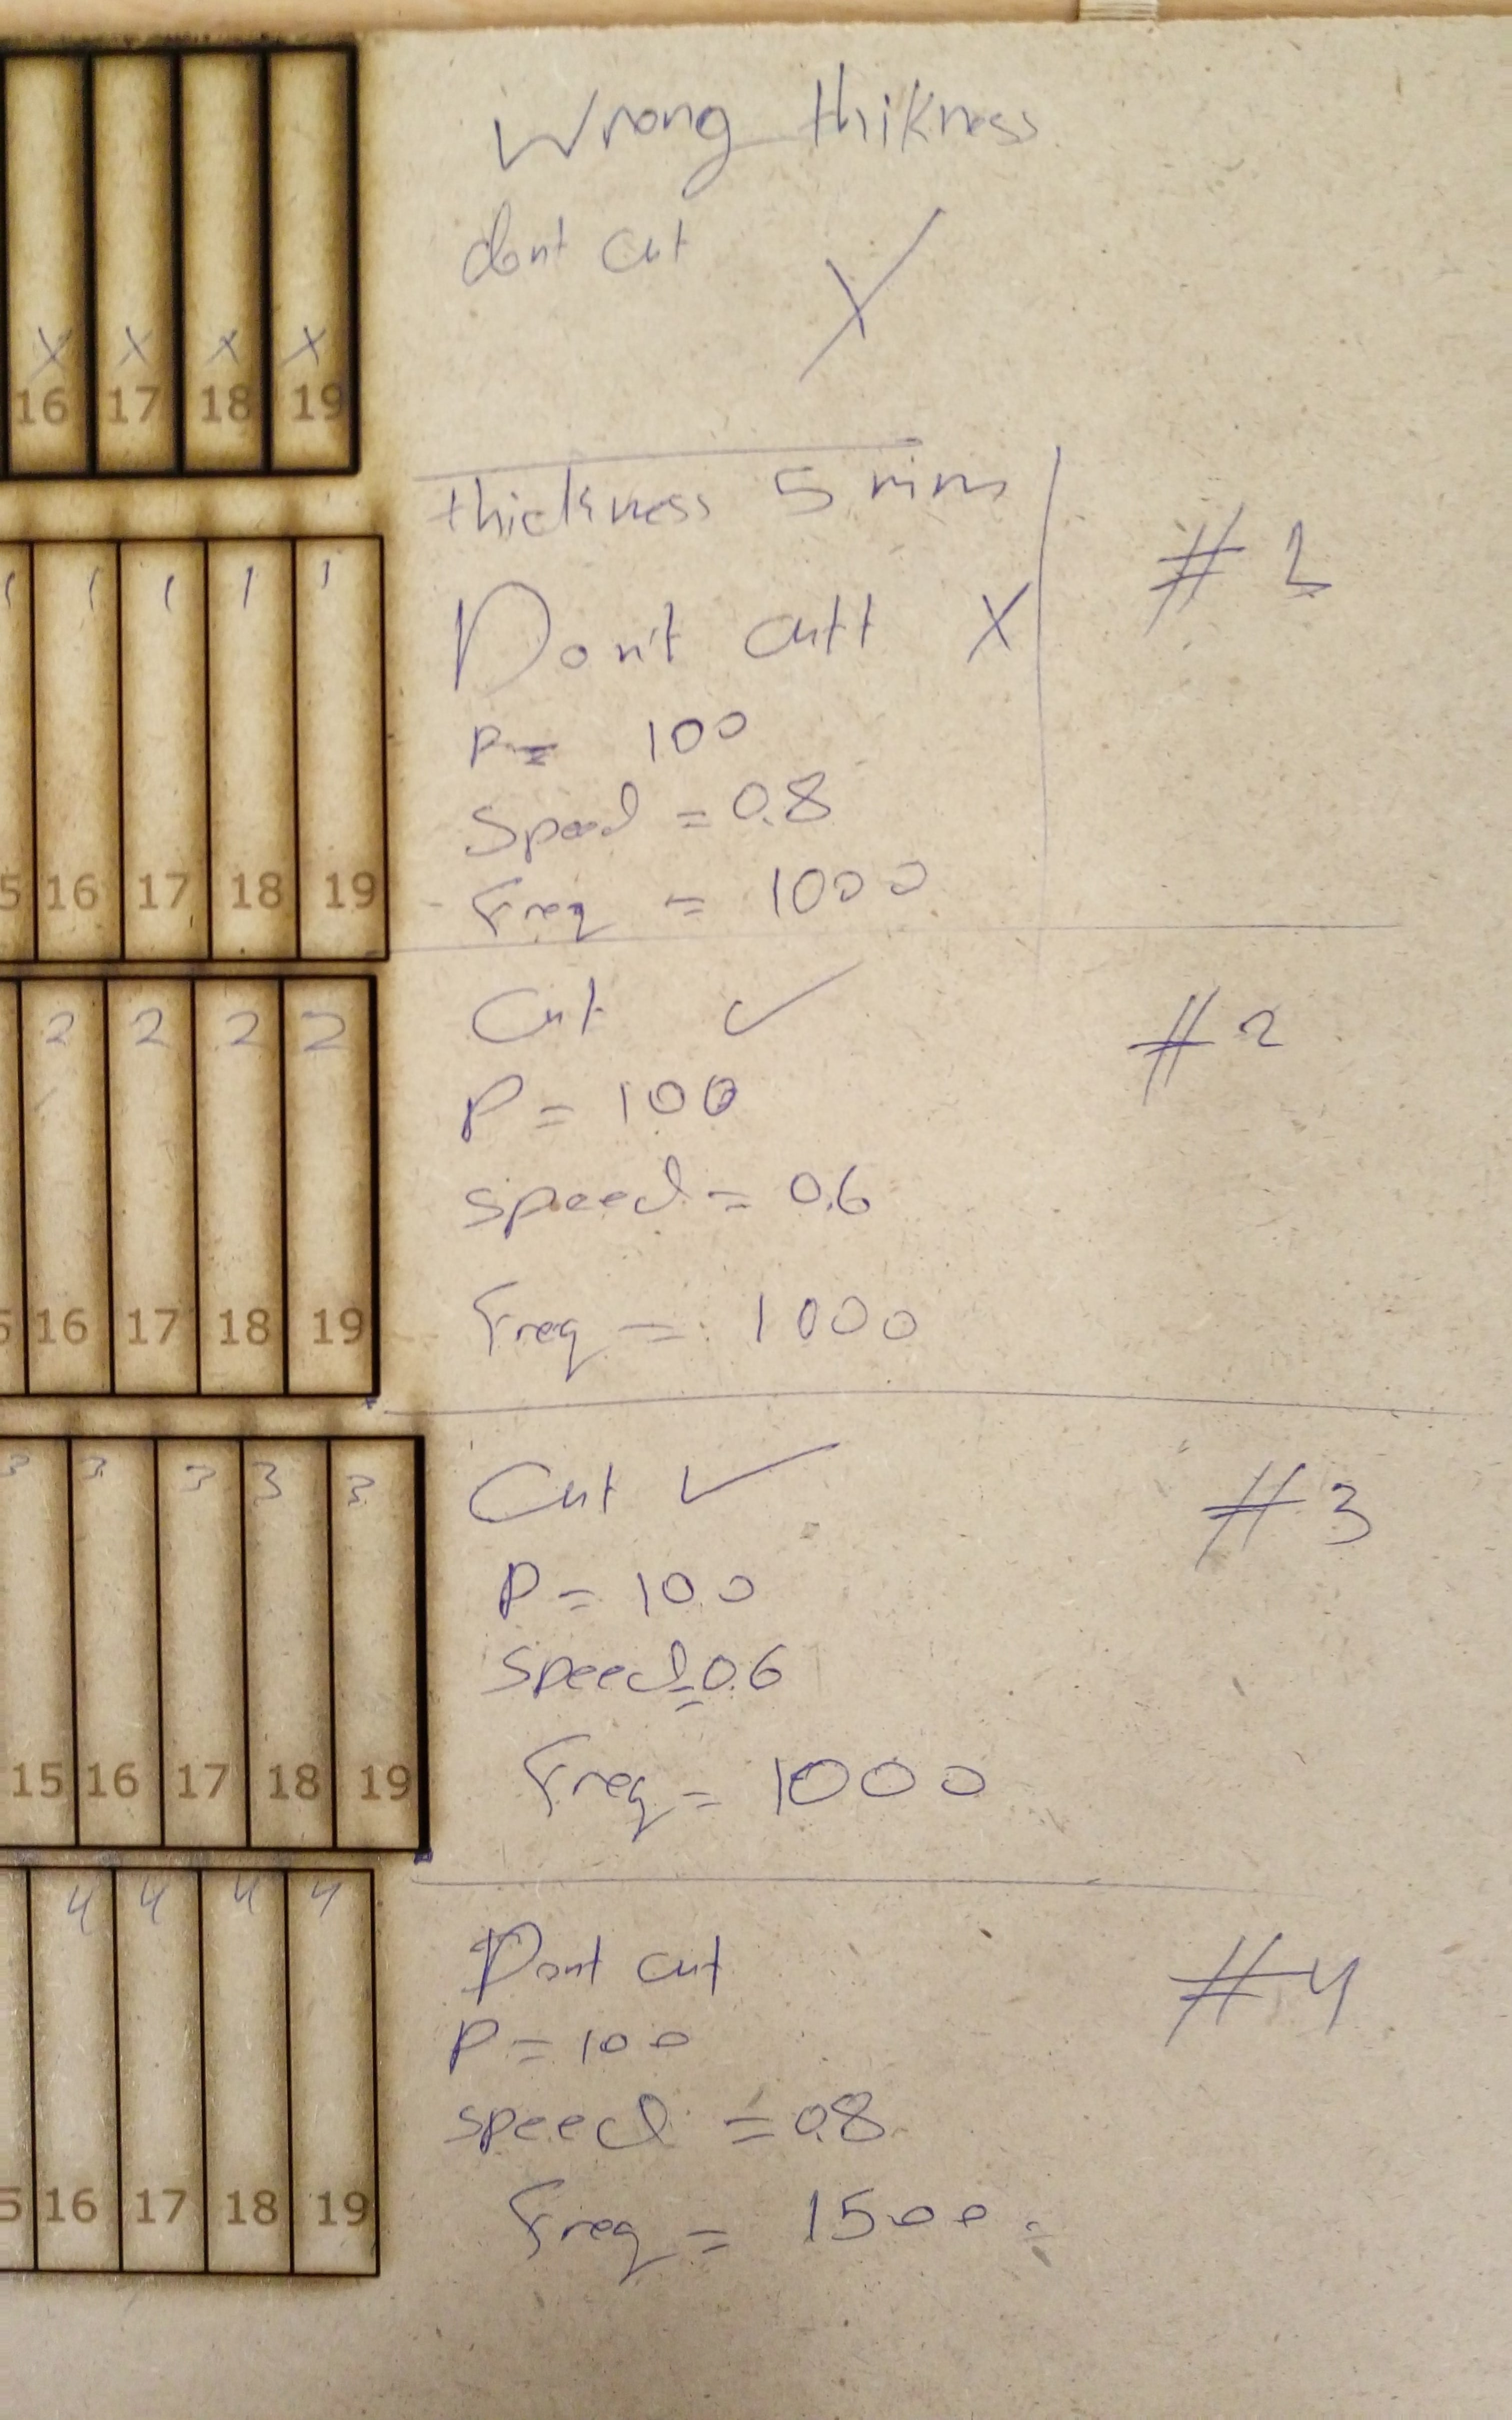 Wrong thikness
dont cut X
X X X X
16 17 18 19
thickness 5 mm
# 1
1 1 1 1 1
Don't cutt X
P= 100
Speed = 0.8
5 16 17 18 19
Freq = 1000
Cut ✓
# 2
2 2 2 2
P= 100
speed = 0.6
5 16 17 18 19
Freq = 1000
Cut ✓
# 3
3 3 3 3 3
P= 100
Speed=0.6
15 16 17 18 19
Freq = 1000
4 4 4 4
Dont cut
# 4
P= 100
speed =08
5 16 17 18 19
Freq = 1500